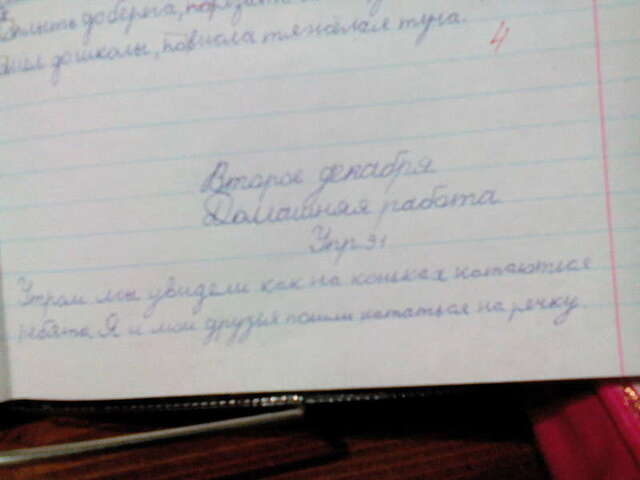 плыть до берега,
дошколы, повисла тяжёлая туча.
4
Второе декабря
Домашняя работа
Упр 31
Утром мы увидели как на коньках катаються
ребята. Я и мои друзья пошли кататься на речку.